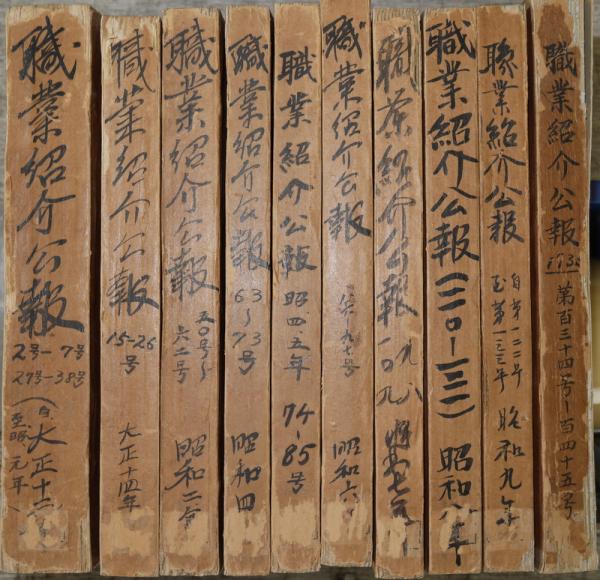 職業紹介公報
2号-7号
27号-38号
(自大正十二年
至昭元年)
職業紹介公報
15-26
号
大正十四年
職業紹介公報
五〇号~
六二号
昭和二年
職業紹介公報
63
~
73
号
昭和四
職業紹介公報
昭四、五年
74-
85号
職業紹介公報
九七号
昭和六
職業紹介公報
九八
一〇九
職業紹介公報(一一〇-一二一)
昭和八年
職業紹介公報
自第一二二号
至第一三三号
昭和九年
職業紹介公報
第百三十四号-百四十五号